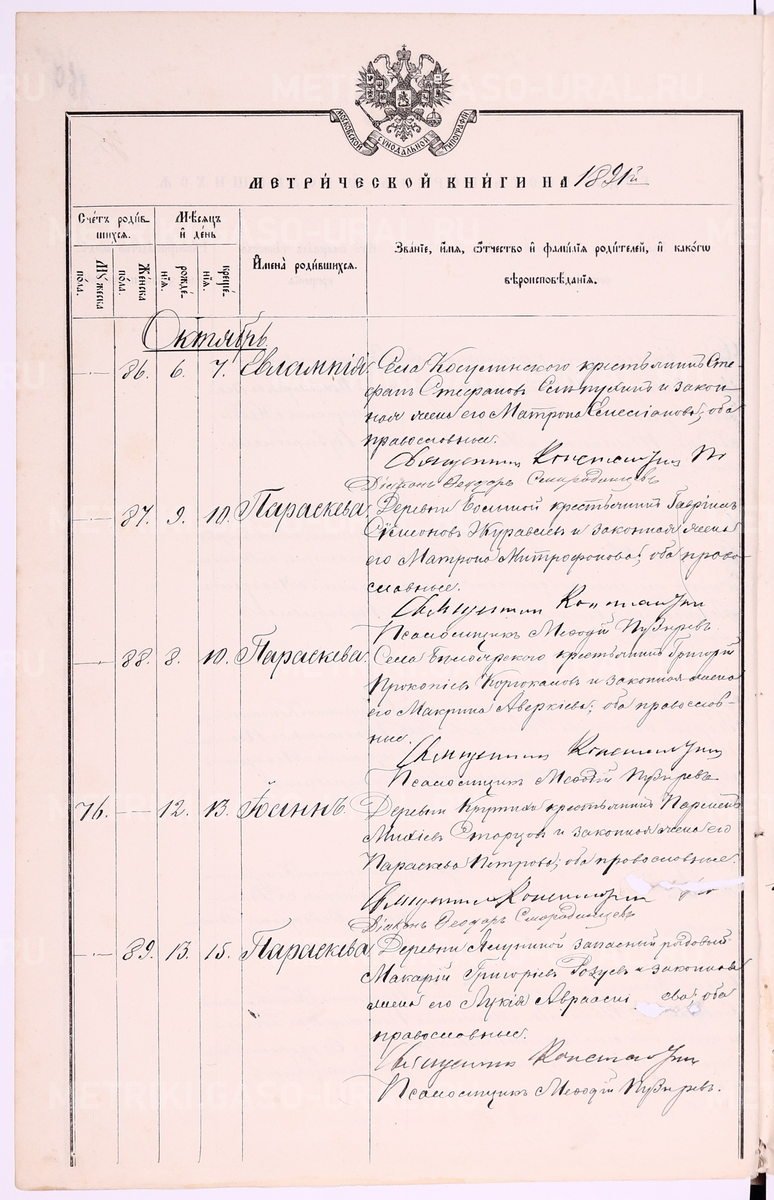 МОСКОВСКОЙ СѴНОДАЛЬНОЙ ТИПОГРАФІИ
МЕТРИ́ЧЕСКОЙ КНИ́ГИ НА 1891й
Сче́тъ роди́вшихся.
Мѣ́сяцъ и҆ де́нь
И҆мена̀ роди́вшихся.
Зва́нїе, и҆́мя, ѻ҆́тчество и҆ фамѝлїя роди́телей, и҆ како́гѡ вѣроисповѣ́данїя.
Мꙋ́жеска по́ла.
Же́нска по́ла.
рожде́нїя.
креще́нїя.
Октябрь
— 86. 6. 7. Евлампія. Села Косулинского крестьянинъ Сте-
фанъ Стефановъ и закон-
ная жена его Матрона; оба
православные.
Священникъ Константин
Діаконъ Ѳеодоръ Смородинцевъ
— 87. 9. 10. Параскева. Деревни Большой крестьянинъ Гавріилъ
Симеоновъ Журавлевъ и законная жена
его Матрона Митрофанова; оба право-
славные.
Священник Константин
Псаломщикъ Меѳодій Пузыревъ.
— 88. 8. 10. Параскева. Села крестьянинъ Григорій
Прокопіевъ и законная жена
его Макрина Аверкіева; оба православ-
ные.
Священник Константин
Псаломщикъ Меѳодій Пузыревъ
76. — 12. 13. Іоаннъ. Деревни Крутихи крестьянинъ
Михіевъ Старцовъ и законная жена его
Параскева Петрова; оба православные.
Священник Константин
Діаконъ Ѳеодоръ Смородинцевъ
— 89. 13. 15. Параскева. Деревни запасный рядовой
Макарій Григоріевъ и законная
жена его Лукія; оба
православные.
Священник Константин
Псаломщикъ Меѳодій Пузыревъ.